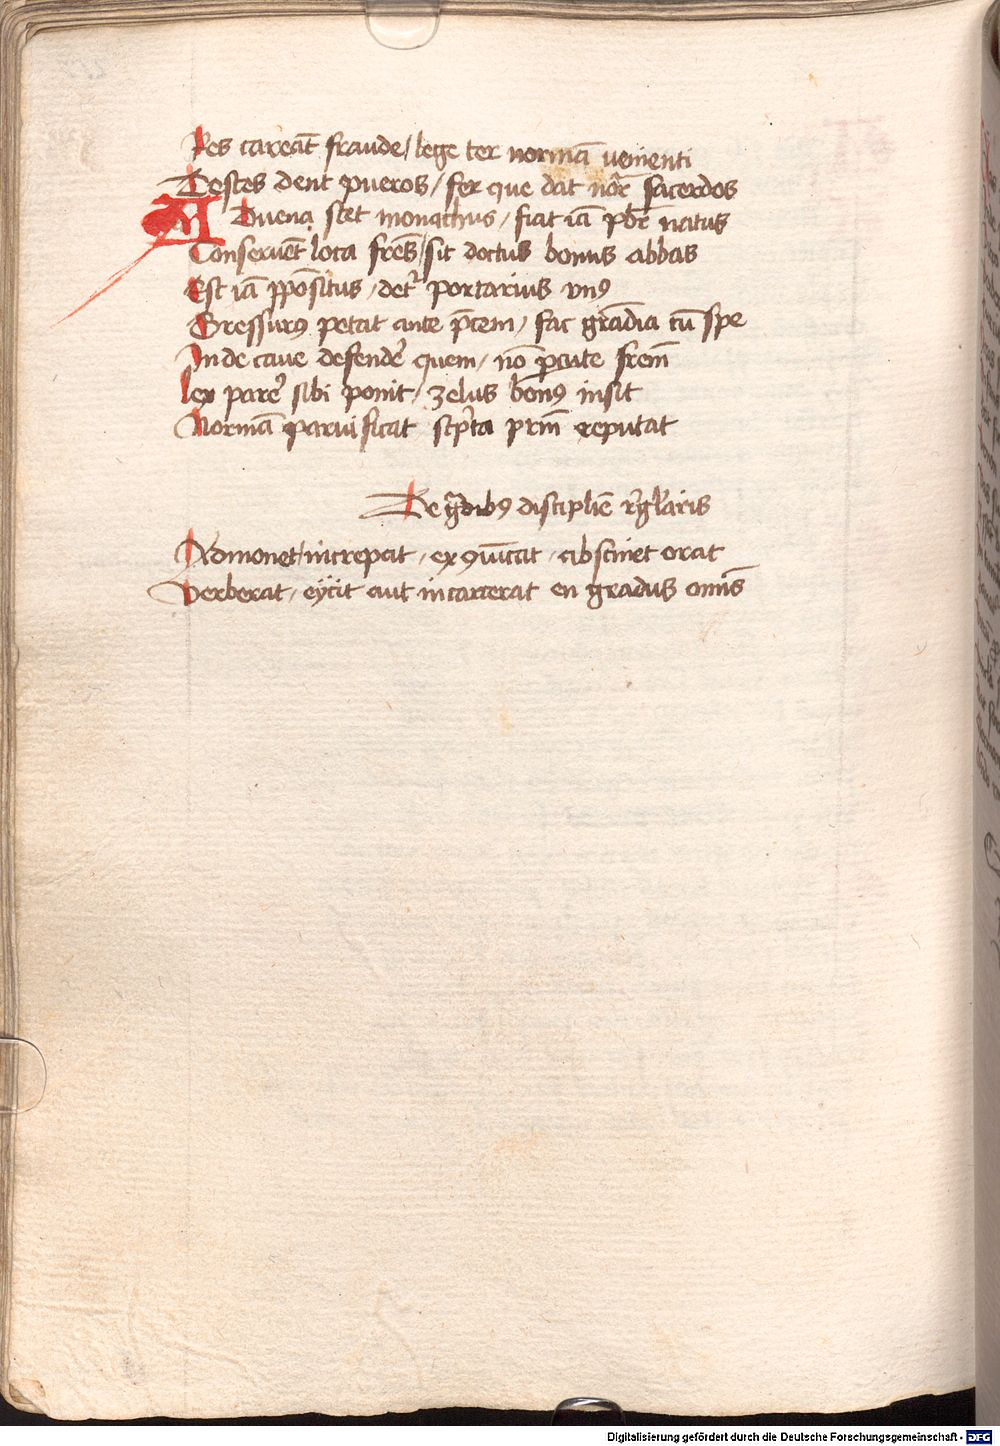 Res careāt fraude / lege ter normā venienti
Testes dent pueros / fer que dat nōr sacerdos
Aduena stet monachus / fiat iā pbr̄ natus
Conseruēt lota frēs / sit doctus bonus abbas
Est iā ppōsitus / det᷑ portarius vnꝰ
Gressurꝰ petat ante p̄cem / fac grādia cū spe
Inde caue defendēr quem / nō p̄cute frēm
Lex parēr sibi ponit / zelus bōnꝰ insit
Normā paruificat scpta prīm reputat
De gͣdibꝰ disciplīe rglaris
Admonet / increpat / exꝯuīcat / abscinet orat
Verberat / eyicit aut incarcerat en gradus om̄s
Digitalisierung gefördert durch die Deutsche Forschungsgemeinschaft - DFG